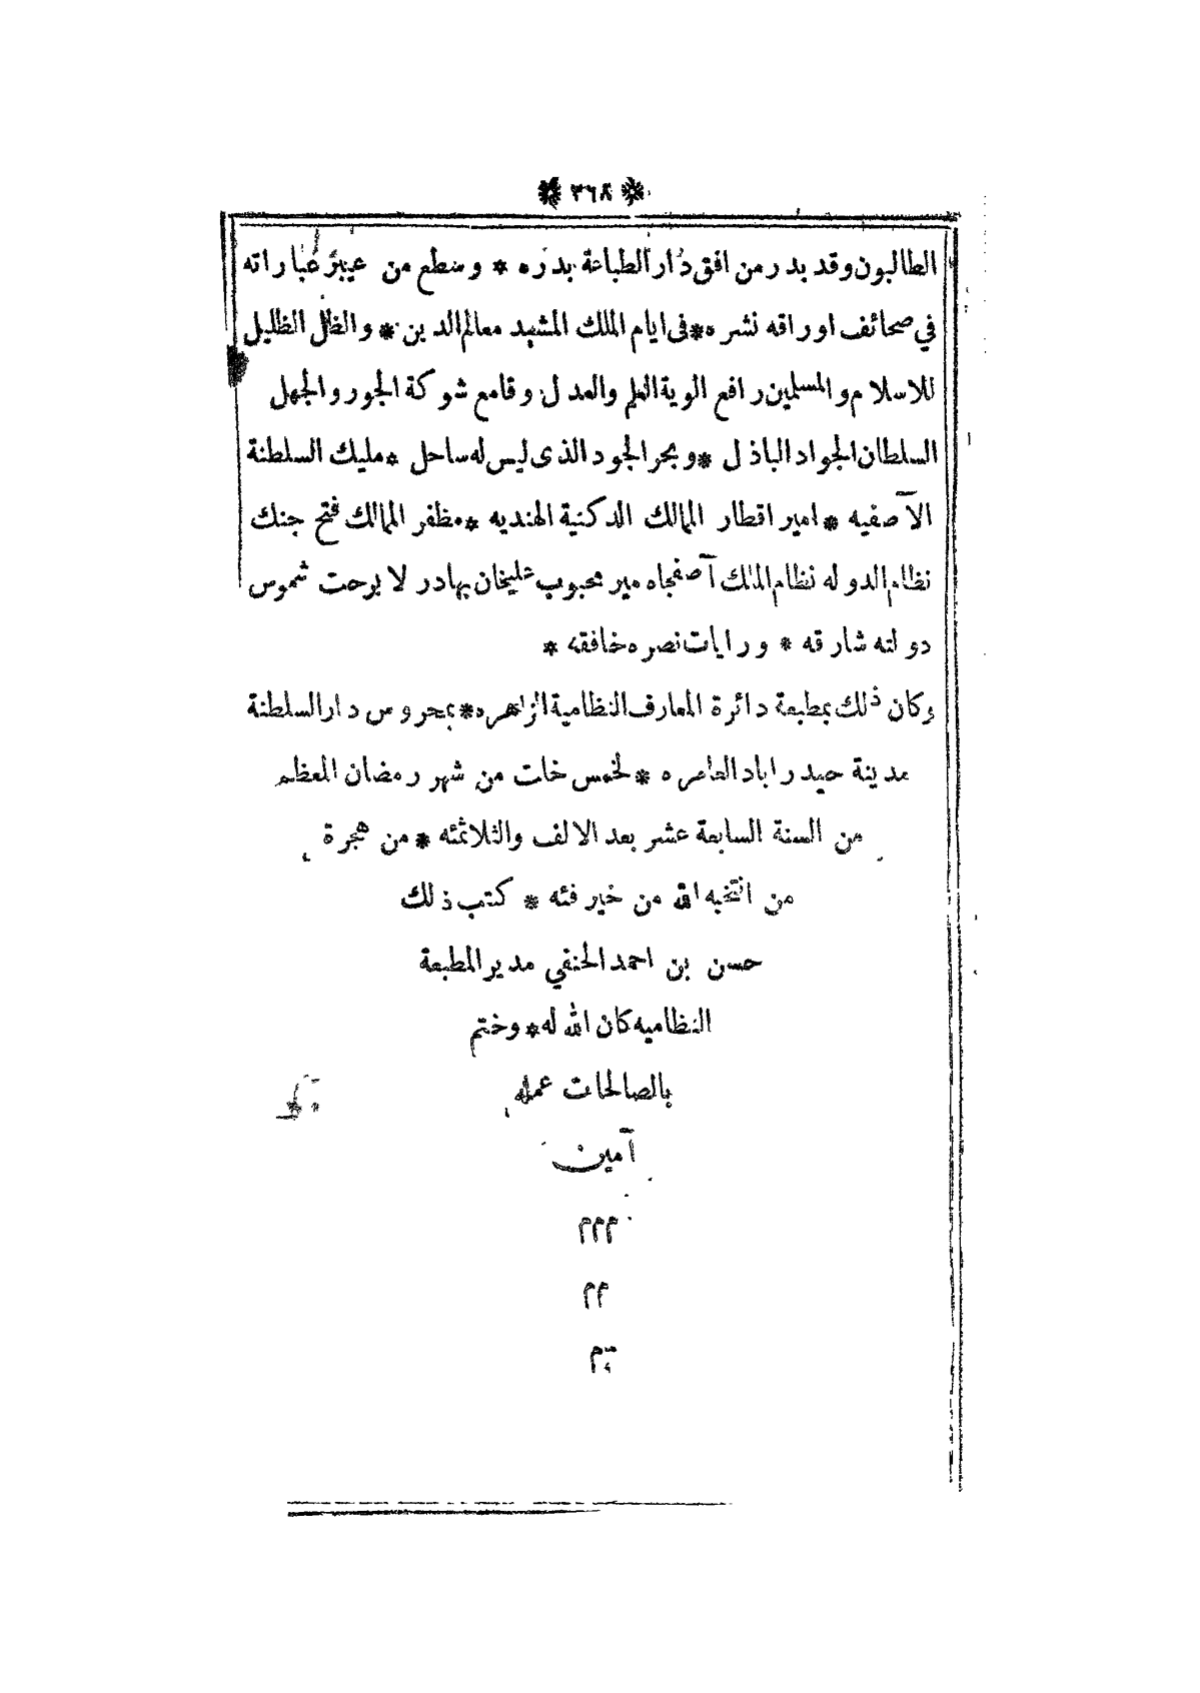 * ٣٦٨ *
الطالبون وقد بدر من افق دار الطباعة بدره * وسطع من عبير عباراته
في صحائف اوراقه نشره * فى ايام الملك المشيد معالم الدين * والظل الظليل
للاسلام والمسلمين رافع الوية العلم والعدل وقامع شوكة الجور والجهل
السلطان الجواد الباذل * وبحر الجود الذى ليس له ساحل * مليك السلطنة
الآصفيه * امير اقطار الممالك الدكنية الهنديه * مظفر الممالك فتح جنك
نظام الدوله نظام الملك آصفجاه مير محبوب عليخان بهادر لا برحت شموس
دولته شارقه * ورايات نصره خافقه *
وكان ذلك بمطبعة دائرة المعارف النظامية الزاهره * بمحروس دار السلطنة
مدينة حيدراباد العامره * لخمس خلت من شهر رمضان المعظم
من السنة السابعة عشر بعد الالف والثلاثمئه * من هجرة
من انتخبه الله من خير فئه * كتب ذلك
حسن بن احمد الحنفي مدير المطبعة
النظاميه كان الله له * وختم
بالصالحات عمله
آمين
م م م
م م
م